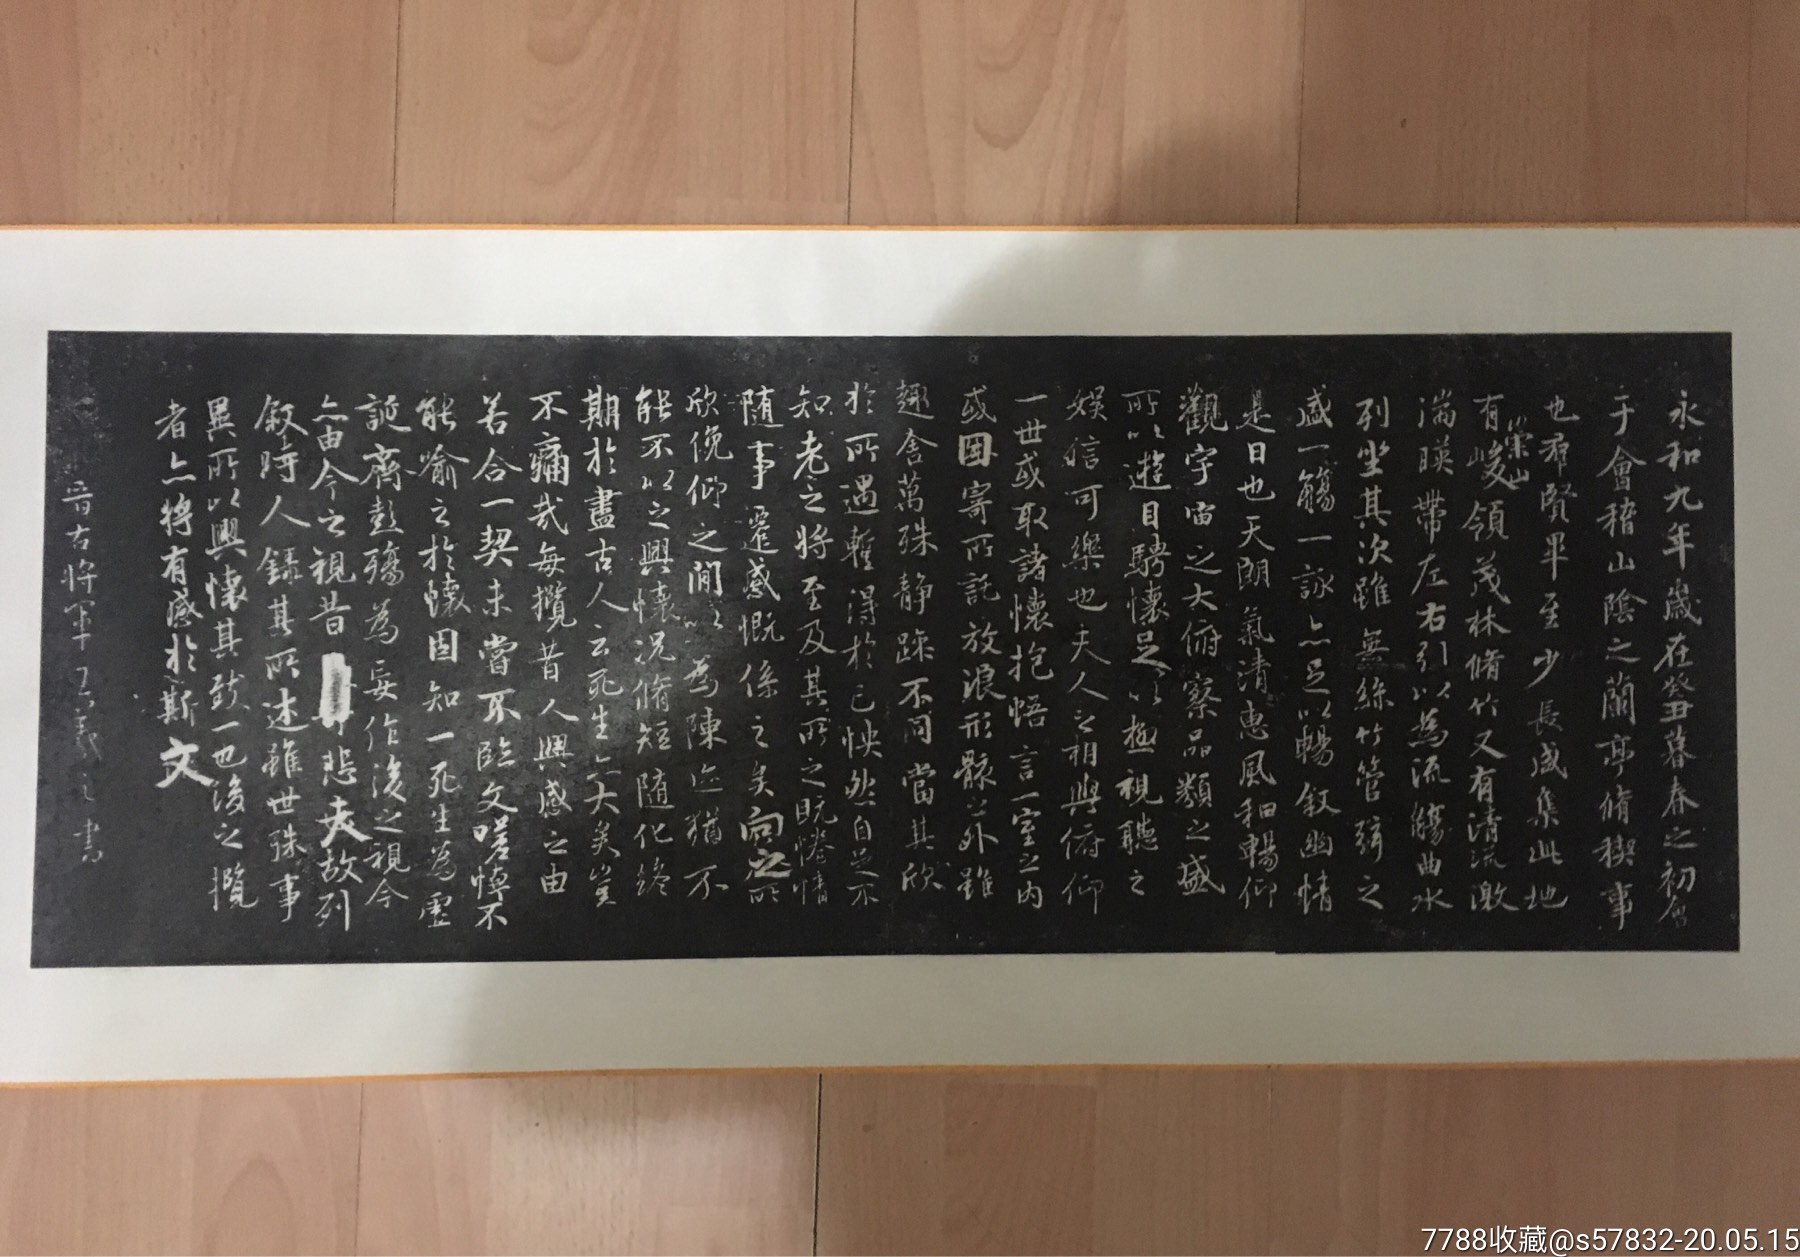 永和九年歲在癸丑暮春之初會
于會稽山陰之蘭亭脩稧事
也羣賢畢至少長咸集此地
有崇山峻領茂林脩竹又有清流激
湍暎帶左右引以為流觴曲水
列坐其次雖無絲竹管弦之
盛一觴一詠亦足以暢叙幽情
是日也天朗氣清惠風和暢仰
觀宇宙之大俯察品類之盛
所以遊目騁懷足以極視聽之
娛信可樂也夫人之相與俯仰
一世或取諸懷抱悟言一室之內
或因寄所託放浪形骸之外雖
趣舍萬殊静躁不同當其欣
於所遇暫得於己怏然自足不
知老之將至及其所之既惓情
随事遷感慨係之矣向之所
欣俛仰之間以為陳迹猶不
能不以之興懷況脩短随化終
期於盡古人云死生亦大矣豈
不痛哉每攬昔人興感之由
若合一契未嘗不臨文嗟悼不
能喻之於懷固知一死生為虛
誕齊彭殤為妄作後之視今
亦由今之視昔悲夫故列
叙時人錄其所述雖世殊事
異所以興懷其致一也後之攬
者亦將有感於斯文
晉右將軍王羲之書
7788收藏@s57832-20.05.15